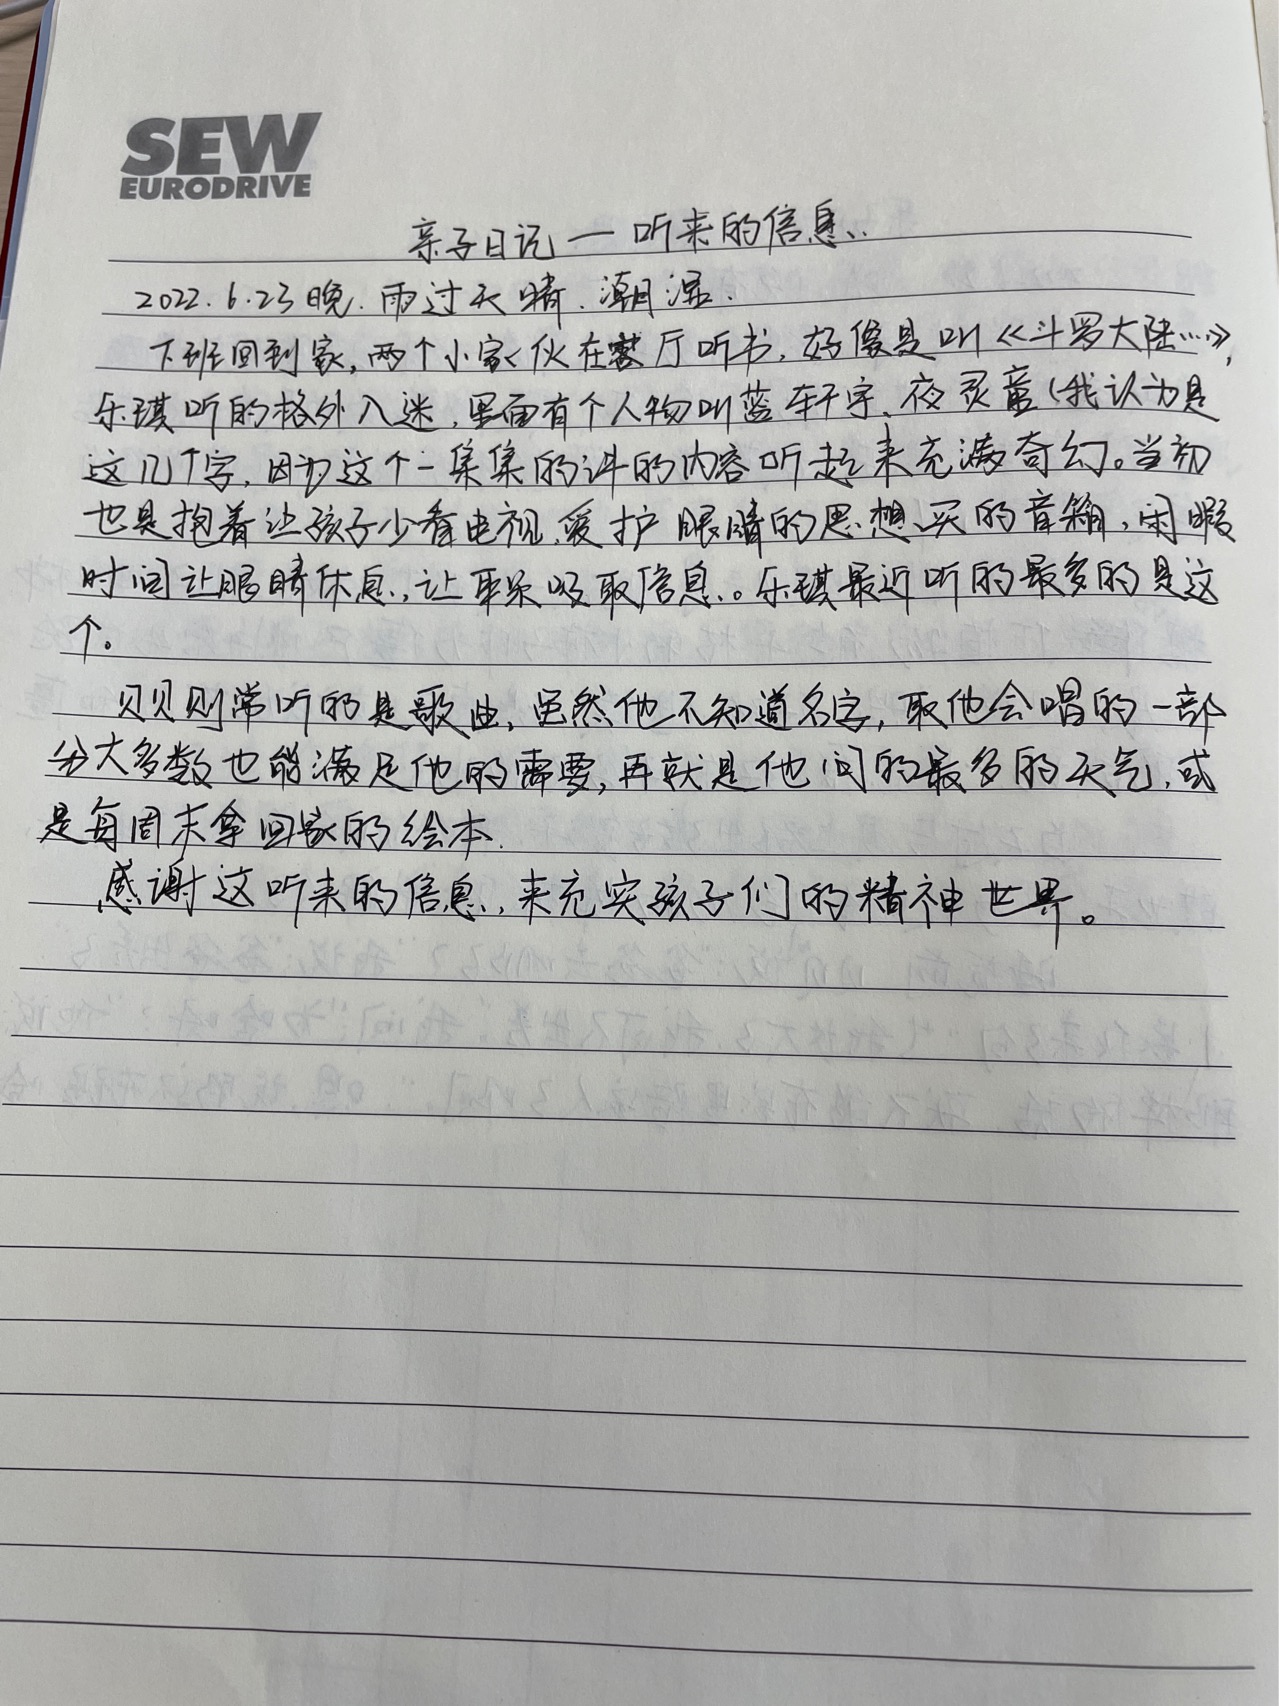 SEW
EURODRIVE
亲子日记一听来的信息..
2022.6.23晚.雨过天晴.潮湿.
下班回到家,两个小家伙在客厅听书,好像是叫《斗罗大陆…》,
乐琪听的格外入迷,里面有个人物叫蓝轩宇、夜灵童(我认为是
这几个字,因为这个一集集的讲的内容听起来充满奇幻。当初
也是抱着让孩子少看电视,爱护眼睛的思想买的音箱,闲暇
时间让眼睛休息,让耳朵吸取信息。乐琪最近听的最多的是这
个。
贝贝则常听的是歌曲,虽然他不知道名字,取他会唱的一部
分大多数也能满足他的需要,再就是他问的最多的天气,或
是每周末拿回家的绘本.
感谢这听来的信息,来充实孩子们的精神世界。